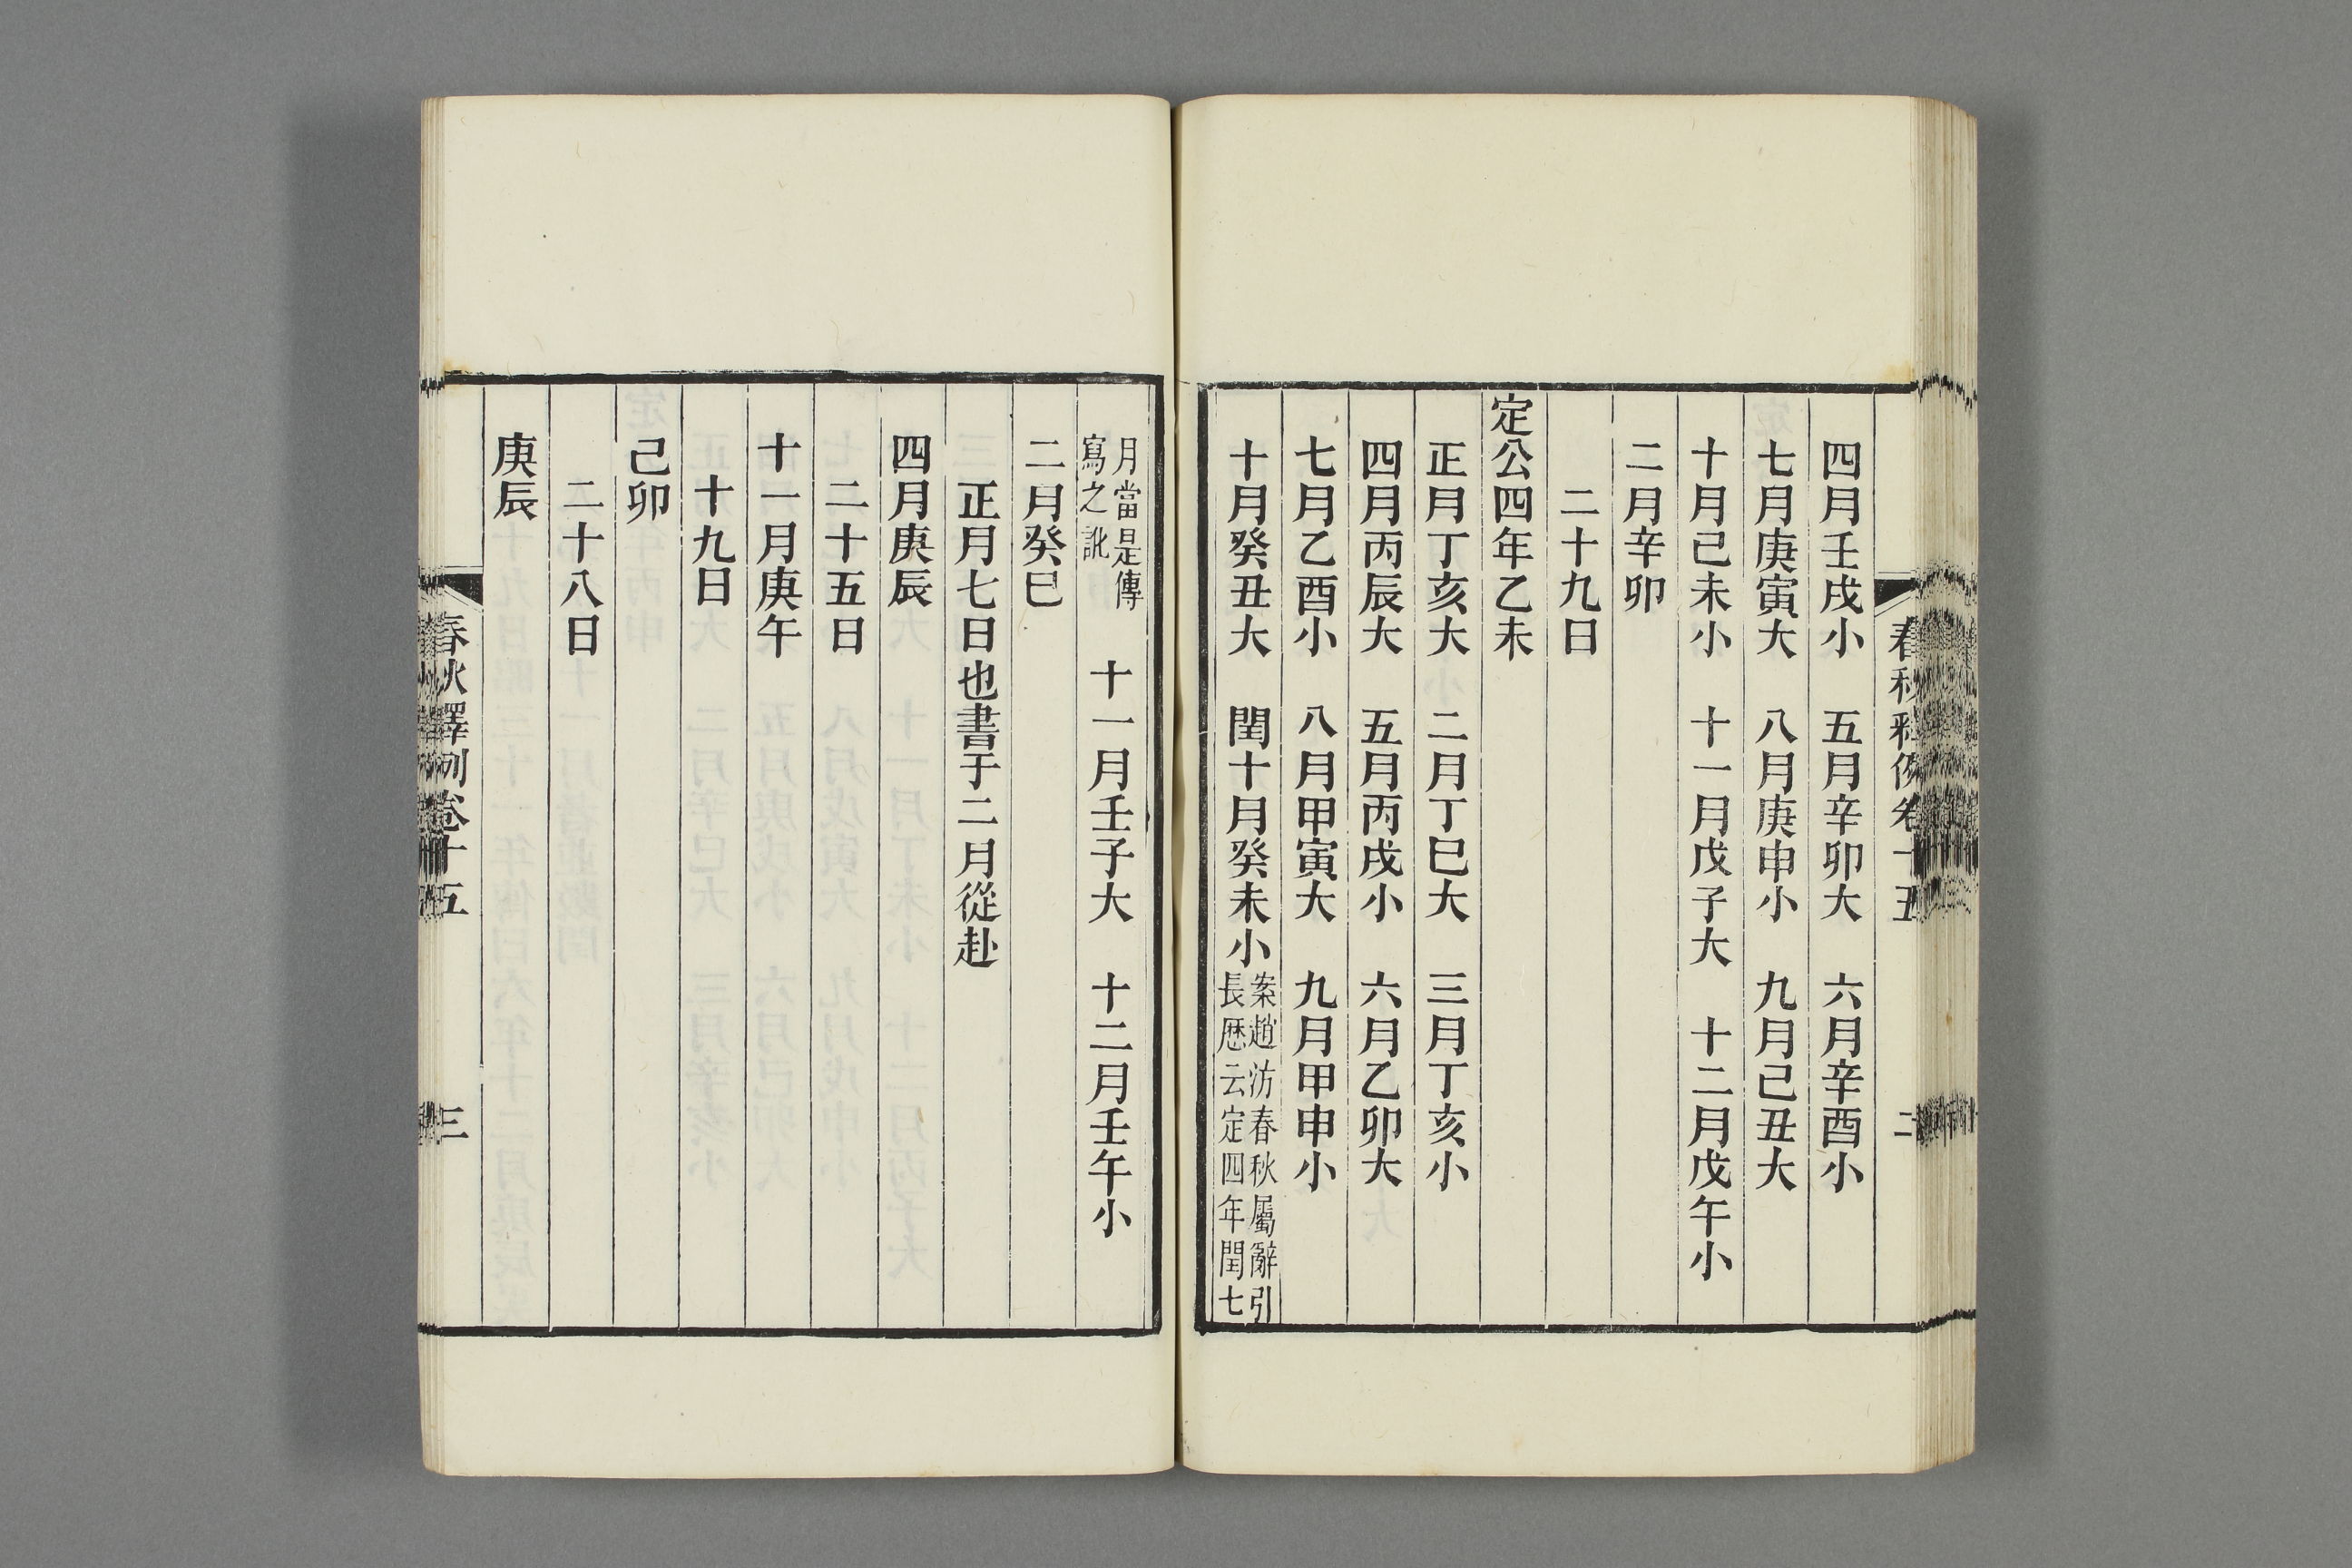 春秋釋例卷十五
二
四月壬戌小　五月辛卯大　六月辛酉小
七月庚寅大　八月庚申小　九月己丑大
十月己未小　十一月戊子大　十二月戊午小
二月辛卯
二十九日
定公四年乙未
正月丁亥大　二月丁巳大　三月丁亥小
四月丙辰大　五月丙戌小　六月乙卯大
七月乙酉小　八月甲寅大　九月甲申小
十月癸丑大　閏十月癸未小
案趙汸春秋屬辭引
長厯云定四年閏七
月當是傳
寫之訛
十一月壬子大　十二月壬午小
二月癸巳
正月七日也書于二月從赴
四月庚辰
二十五日
十一月庚午
十九日
己卯
二十八日
庚辰
春秋釋例卷十五
三